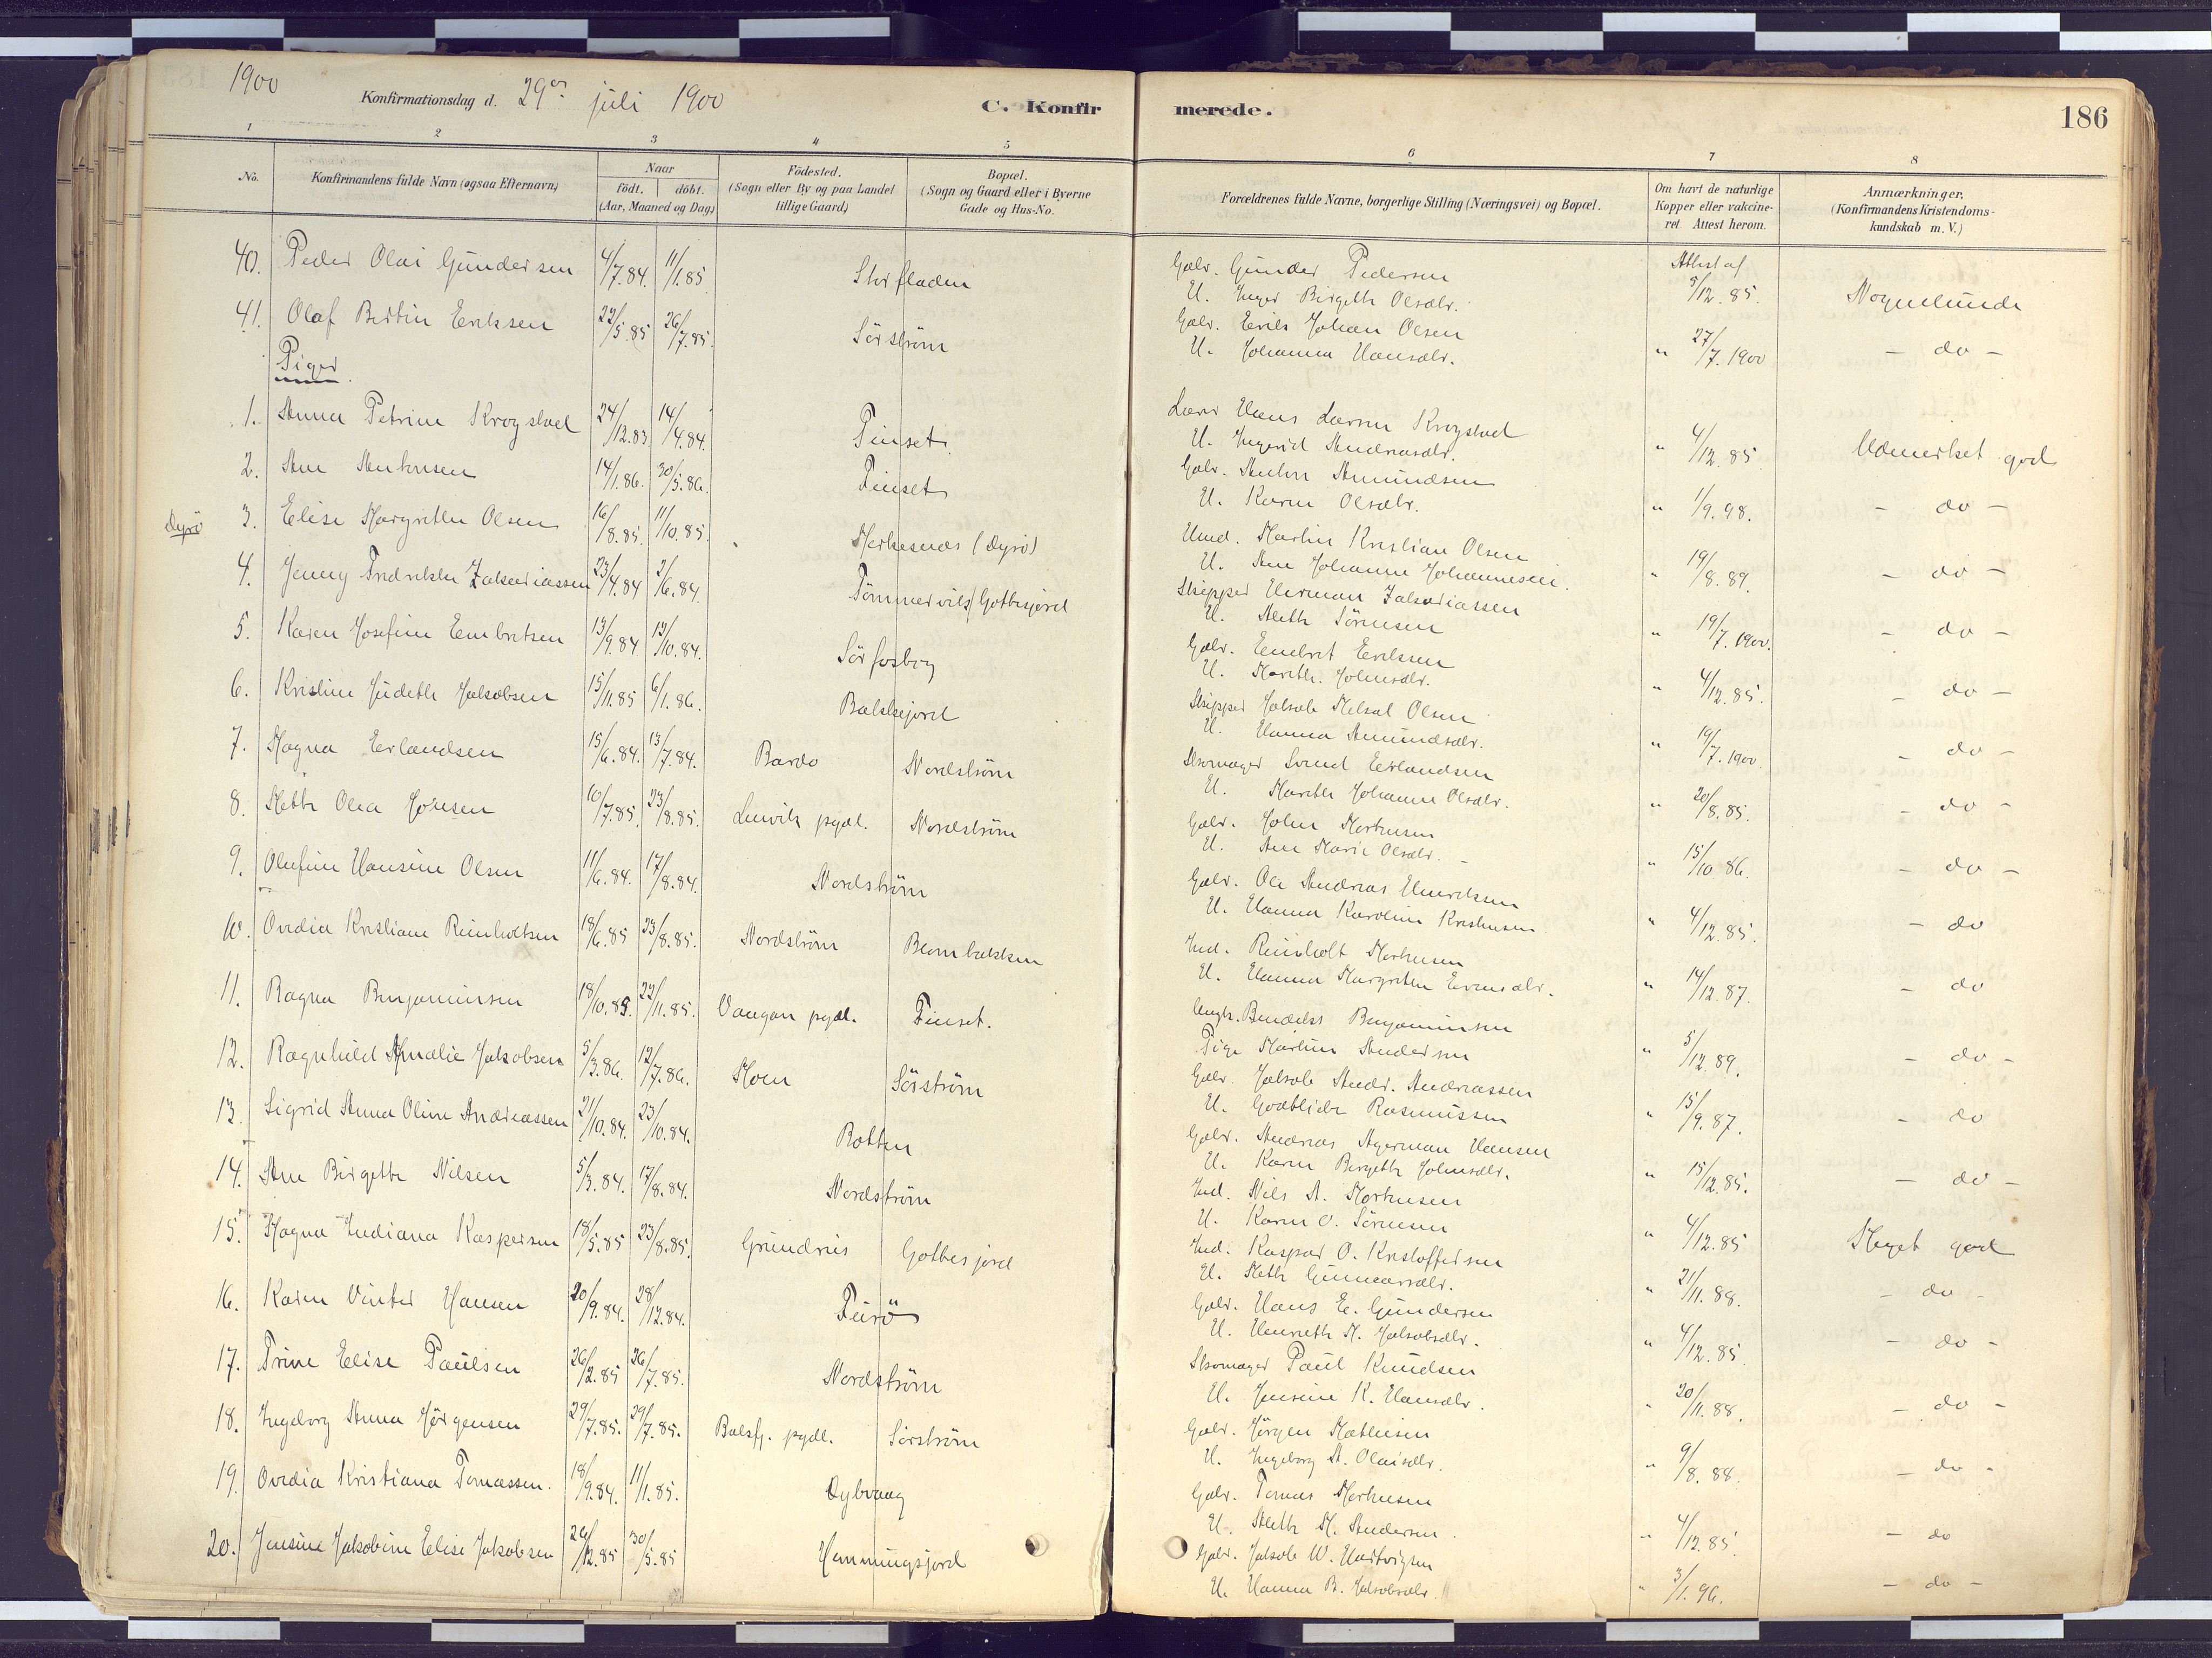 1900
Konfirmationsdag d. 29de juli 1900
C. Konfirmerede.
186
1 2 3 4 5 6 7 8
No.
Konfirmandens fulde Navn (ogsaa Efternavn)
Naar
födt. döbt.
(Aar, Maaned og Dag)
Födested.
(Sogn eller By og paa Landet
tillige Gaard)
Bopæl.
(Sogn og Gaard eller i Byerne
Gade og Hus-No.
Forældrenes fulde Navne, borgerlige Stilling (Næringsvei) og Bopæl.
Om havt de naturlige
Kopper eller vakcine-
ret. Attest herom.
Anmærkninger.
(Konfirmandens Kristendoms-
kundskab m. V.)
40. Peder Olai Gundersen 4/7.84. 11/1.85. Storfladen Gbr. Gunder Pedersen Attest af 5/12.85. Nogenlunde
H. Inger Birgethe Olsdtr.
41. Olaf Bertin Eriksen 22/5.85 26/7.85. Sörström Gbr. Erik Johan Olsen " 27/7.1900 - do -
H. Johanna Hansdtr.
Piger
1. Anna Petrine Krogstad 24/12.83 14/4.84. Finset. Lærer Hans Larsen Krogstad " 4/12.85 Udmerket god
H. Ingerid Andreasdtr.
2. Ane Antonsen 14/1.86. 30/5.86. Finset Gbr. Anton Amundsen " 1/9.98. - do -
H. Karen Olsdtr.
Dyrö 3. Elise Margrethe Olsen 16/8.85. 11/10.85. (Dyrö) Martin Kristian Olsen " 19/8.89. - do -
H. Ane Johanne Johannesen.
4. Jenny Fredrikke Zakariassen 23/4.84 2/6.84. Tömmervik, Gotbesjord Skipper Herman Zakariassen " 19/7.1900. - do -
H. Aleth Sörensen
5. Karen Josefine Embretsen 13/9.84 19/10.84. Sörfosbog Gbr. Embret Eriksen " 4/12.85. - do -
H. Marith. Johnsdtr.
6. Kristine Judeth Jakobsen 15/11.85 6/1.86. Balskejord Skipper Jakob Mikal Olsen " 19/7.1900. do -
H. Hanna Amundsdtr.
7. Magna Erlandsen 15/6.84. 13/7.84. Bardo Nordström Skomager Svend Erlandsen " 20/8.85. - do -
H. Marith Johanne Olsdtr.
8. Meth Olea Johnsen 10/7.85. 23/8.85. Lenvik pgdl. Nordström Gbr. John Mortensen " 15/10 86. - do -
H. Ane Marie Olsdtr.
9. Olufine Hansine Olsen 11/6.84. 17/8.84. Nordström Gbr. Ole Andreas Henriksen " 4/12.85. - do
H. Hanna Karoline Kristensen
10. Ovedia Kristiane Reinholtsen 18/6.85 23/8.85. Nordström Blombakken Ind. Reinholt Mortensen " 14/12.87. - do
H. Hanna Margrethe Evensdtr.
11. Ragna Benjaminsen 18/10.85 22/11.85. Vaagan pgdl. Finset. Ungk. Benedikt Benjaminsen " 5/12.89. - do -
Pige Martine Andersen
12. Ragnhild Amalie Jakobsen 5/3.86. 12/7.86. Moen Sörström Gbr. Jakob Andr. Andreassen " 15/9.87. - do
H. Godtlibe Rasmussen
13. Sigrid Anna Oline Andreassen 21/10.84. 23/10.84. Botten Gbr. Andreas Agerman Hansen " 15/12.85. - do -
H. Karen Birgethe Johnsdtr.
14. Ane Birgethe Nilsen 5/3.84. 17/8.84. Nordström Ind. Nils A. Mortensen " 4/12.85 Meget god
H. Karen O. Sörensen
15. Magna Indiana Kaspersen 18/5.85 23/8.85. Grundnes Gotbesjord Ind. Kaspar O. Kristoffersen " 21/11.88. - do -
H. Meth Gunnarsdtr.
16. Karen Vinter Hansen 20/9.84. 28/12.84. Feirö Gbr. Hans E. Gundersen " 4/12.85. - do -
H. Henrette M. Jakobsdtr.
17. Trine Elise Paulsen 26/2.85 26/7.85. Nordström Skomager Paul Knudsen " 20/11.88. - do -
H. Jensine K. Hansdtr.
18. Ingeborg Anna Jörgensen 29/7.85. 29/7.85. Balsfj. pgdl. Sörström Gbr. Jörgen Mathisen " 9/8.88. - do -
H. Ingeborg A. Olaisdtr.
19. Ovedia Kristiana Tomassen. 18/9.84. 11/1.85. Dybvaag Gbr. Tomas Mortensen " 4/12.85. - do
H. Aleth M. Andersen.
20. Jensine Jakobine Elise Jakobsen 26/12.85 30/5.85 Hemmingsjord Gbr. Jakob W. Hartvigsen " 3/1.96. - do -
H. Hanna B. Jakobsdtr.